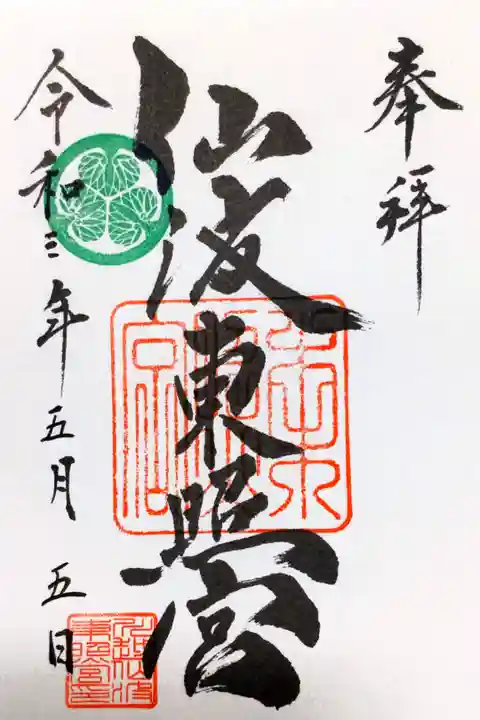 奉拝
仙波東照宮
令和三年五月五日